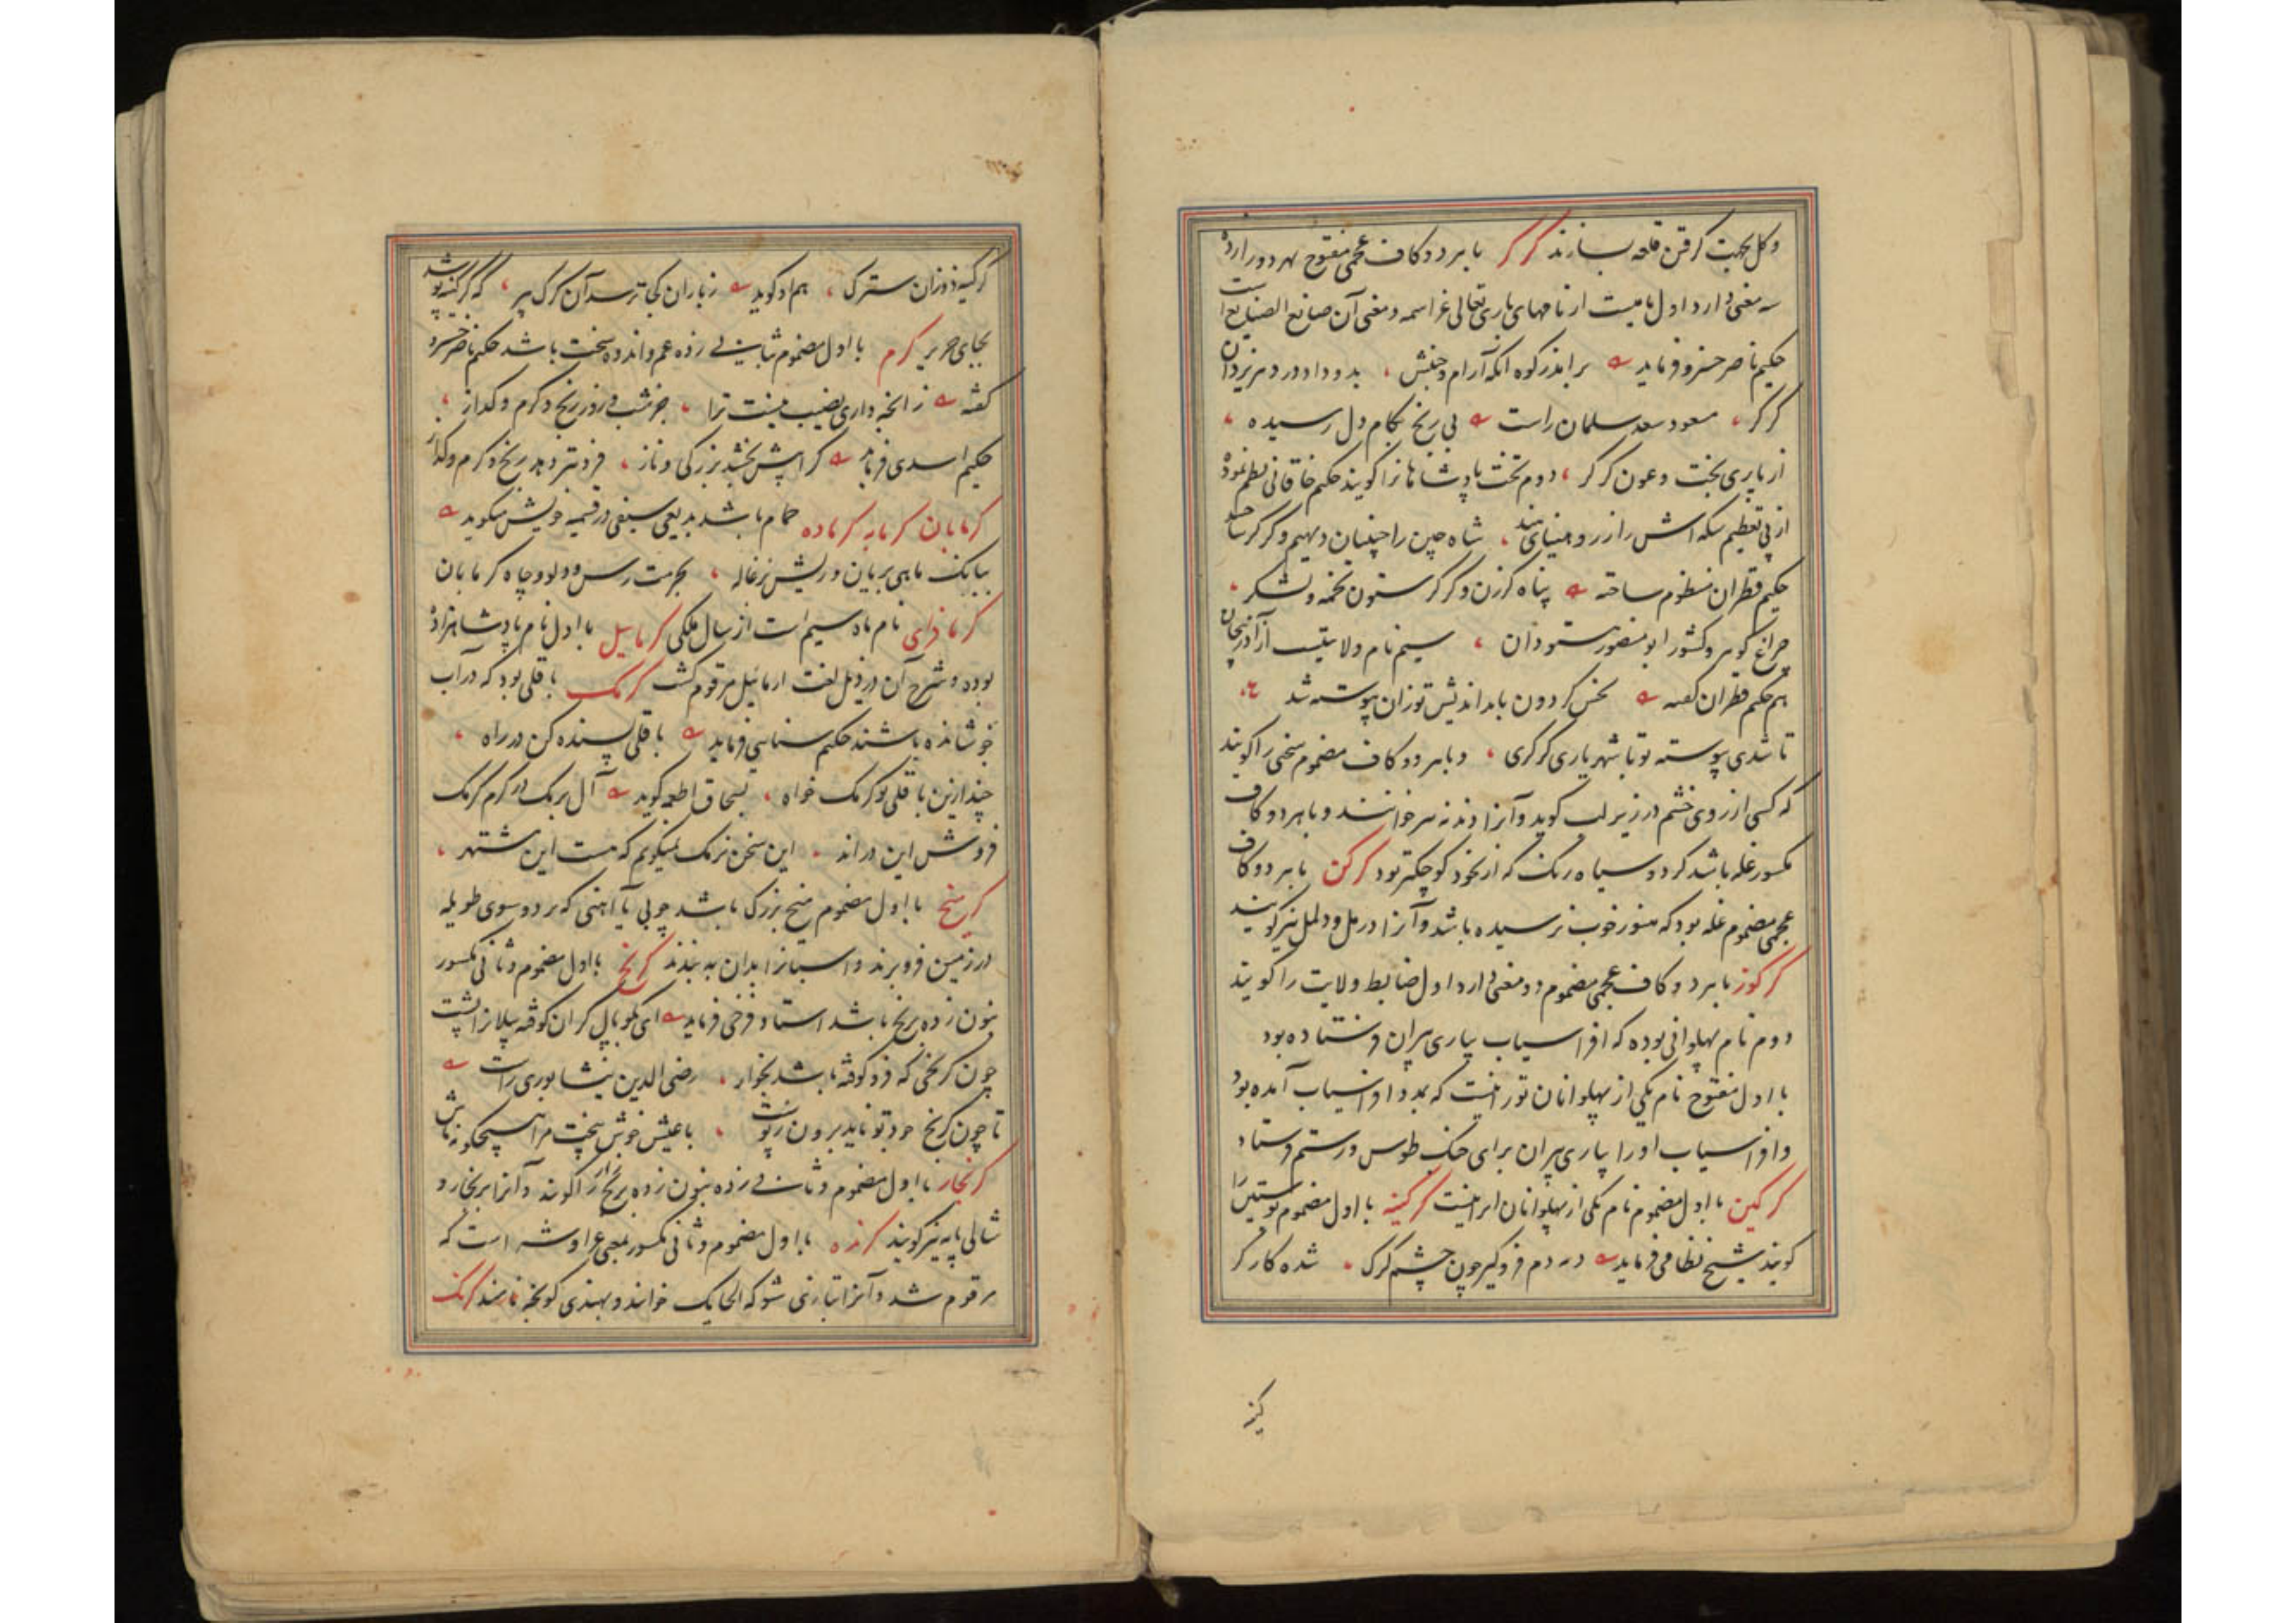 و کل بجهت کرفتن قلعه بسازند کرکر با هر دو کاف عجمی مفتوح بهر دو را زده
سه معنی دارد اول نامیست از نامهای باری تعالی عز اسمه و معنی آن صانع الصنایع است
حکیم ناصر خسرو فرماید براندر کوه آنکه آرام و جنبش بدو داد و در دهر یزدان
کرکر مسعود سعد سلمان راست بی رنج بکام دل رسیده
از یاری بخت و عون کرکر دوم تخت پادشاهانرا کویند حکیم خاقانی نظم نموده
از پی تعظیم سکه اش را از رو مینای هند شاه چین را چینیان دیهیم و کرکر ساختند
حکیم قطران منظوم ساخته پناه کرزن و کرکر ستون تخمه و لشکر
چراغ کوهر و کشور ابو منصور هستودان سیم نام ولایتیست از آذربیجان
هم حکیم قطران کفته نحس کردون با بداندیش تو زان پیوسته شد
تا شدی پیوسته تو با شهریاری کرکری و با هر دو کاف مضموم سخنی را کویند
که کسی از روی خشم در زیر لب کوید و آنرا دندنه نیز خوانند و با هر دو کاف
مکسور غله باشد کرد و سیاه رنک که از نخود کوچکتر بود کرکن با هر دو کاف
عجمی مضموم غله بود که هنوز خوب نرسیده باشد و آنرا درمل و دلمل نیز کویند
کرکوز با هر دو کاف عجمی مضموم دو معنی دارد اول ضابط ولایت را کویند
دوم نام پهلوانی بوده که افراسیاب بیاری پیران فرستاده بود
با اول مفتوح نام یکی از پهلوانان تورانیست که بمدد افراسیاب آمده بود
و افراسیاب او را بیاری پیران برای جنک طوس و رستم فرستاد
کرکین با اول مضموم نام یکی از پهلوانان ایرانیست کرکینه با اول مضموم پوستین را
کویند شیخ نظامی فرماید در دم فروکیر چون چشم کرک شده کار کر
کینه
کرکینه دوزان سترک هم او کوید ز باران کجا ترسد آن کرک پیر که کرکینه پوشد
بجای حریر کرم با اول مضموم ثانی زده غم و اندوه سخت باشد حکیم ناصر خسرو
کفته زانچه داری نصیب نیست ترا جز شب و روز رنج و کرم و کداز
حکیم اسدی فرماید کرا پیش بخشد بزرکی و ناز فزونتر دهد رنج و کرم و کداز
کرمابان کرمابه کرماده حمام باشد بدیعی سیفی در قسمیه خویش میکوید
ببانک ماهی بریان و ریش بزغاله بحرمت رسن و دلو و چاه کرمابان
کرمافزای نام ماه سیم است از سال ملکی کرماییل با اول نام پادشاهزاده
بوده و شرح آن در ذیل لغت ارمائیل مرقوم کشت کرمک باقلی بود که در آب
جوشانیده باشند حکیم سنایی فرماید باقلی بسنده کن در راه
چند ازین باقلی تو کرمک خواه بسحاق اطعمه کوید آل برمک در کرم کرمک
فروش این درند این سخن نرمک نمیکویم که هست این مشتهر
کرمیخ با اول مضموم میخ بزرک باشد چوبی یا آهنی که بر دو سوی طویله
در زمین فرو برند و اسپانرا بدان به بندند کرنج با اول مضموم و ثانی مکسور
بنون زده برنج باشد استاد فرخی فرماید ای بکوپال کران کوفته پیلانرا پشت
چون کرنجی که فرو کوفته باشد بجواز رضی الدین نیشابوری راست
تا چون کرنج خود تو نیاید برون ز پوست با عیش خوش نپخت مرا هیچکونه آش
کرنجار با اول مضموم و ثانی زده بنون زده برنج زار را کویند و آنرا برنجارو
شالی پایه نیز کویند کرنده با اول مضموم و ثانی مکسور بمعنی غراوشه است که
مرقوم شد و آنرا بتازی شوکه الحایک خوانند و بهندی کونچه نامند کرنک